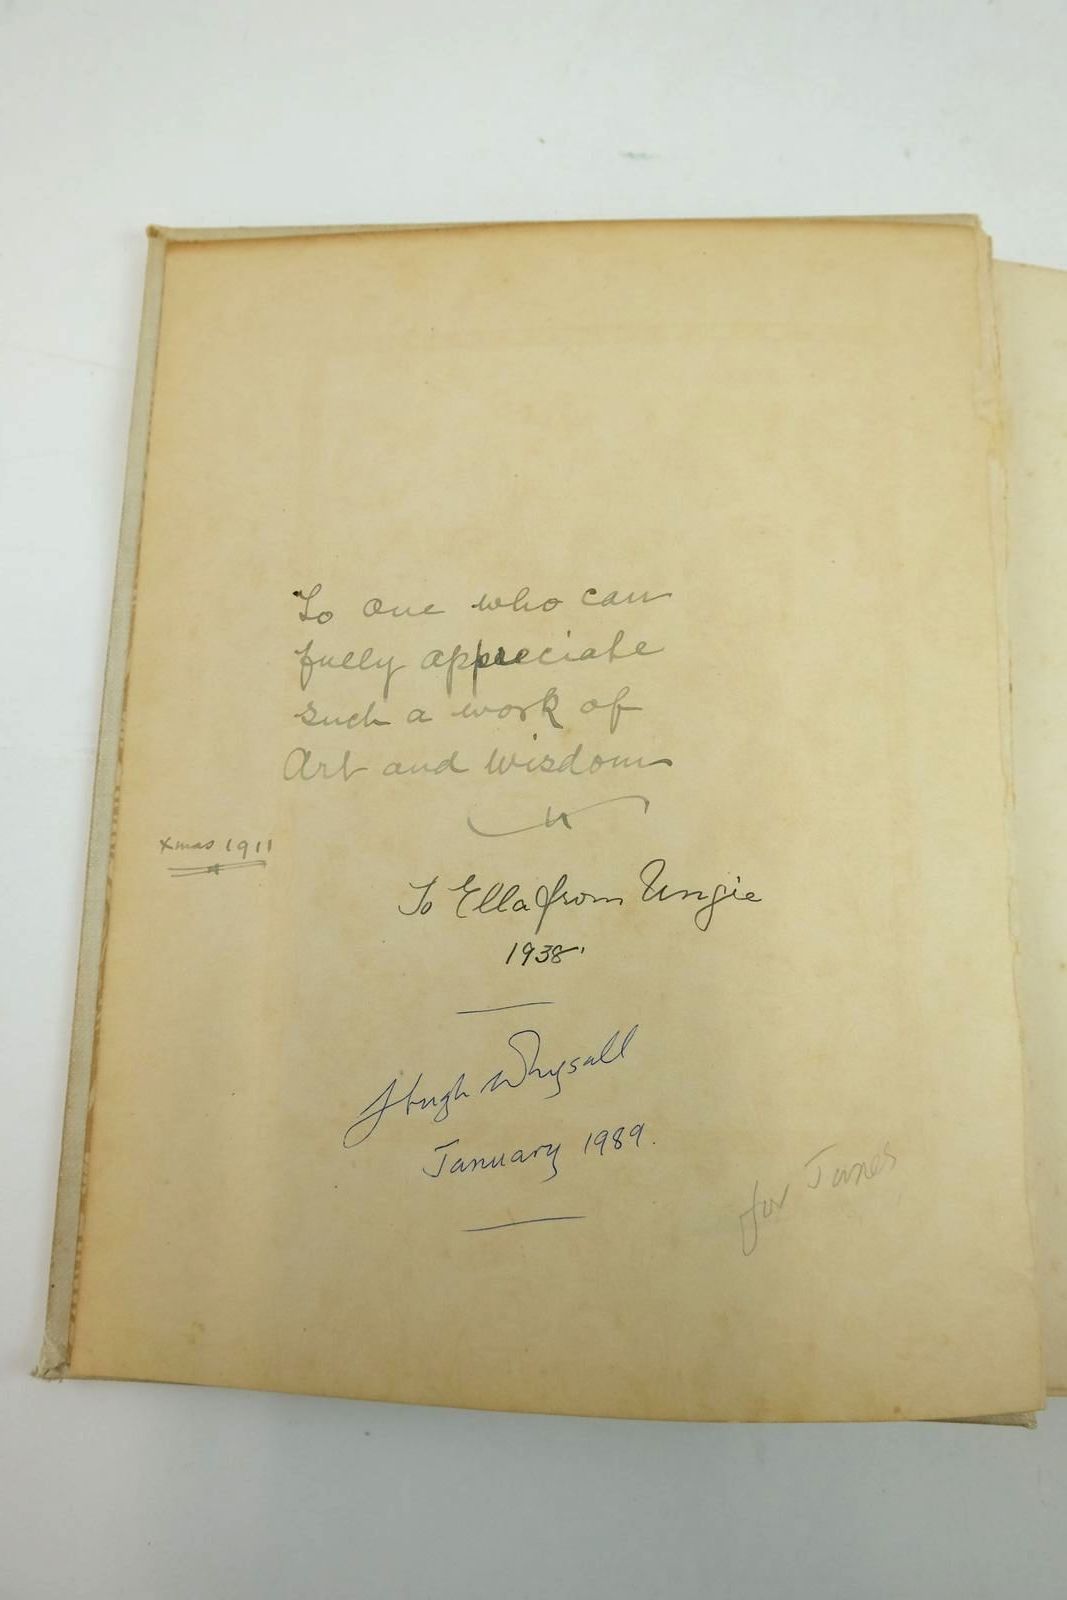 To one who can
fully appreciate
such a work of
Art and wisdom
Xmas 1911
To Ella from
1938.
Hugh Whysall
January 1989.
for